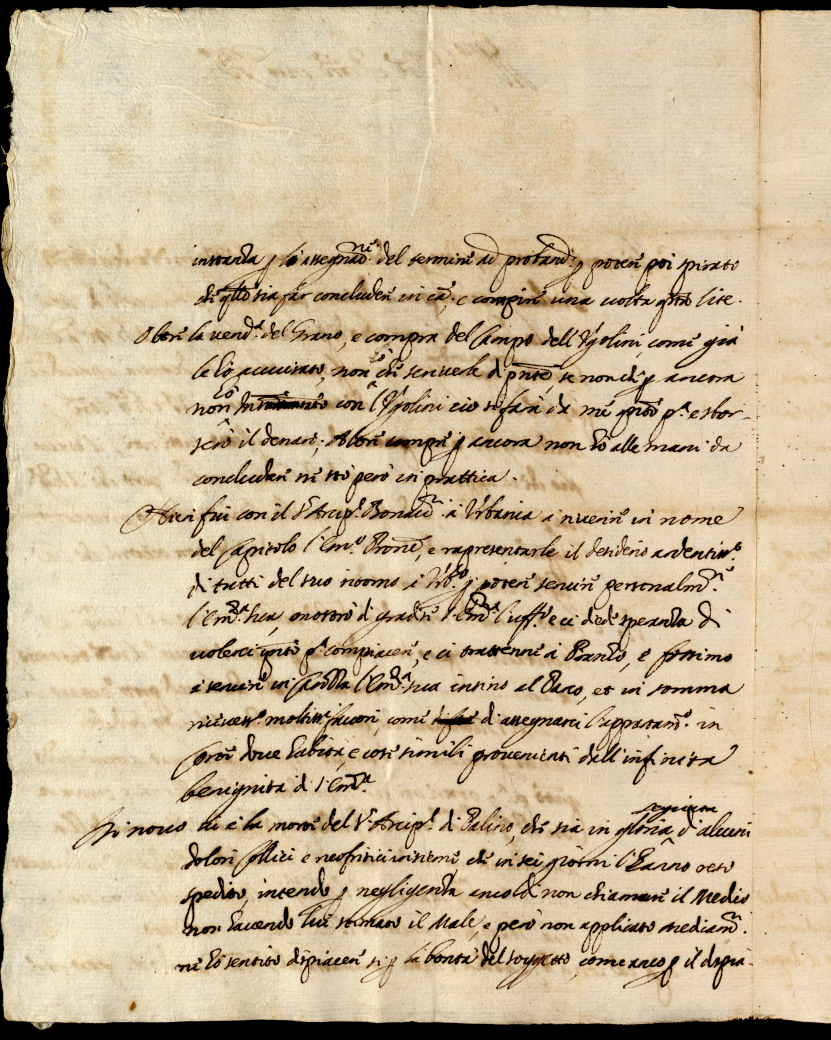 instanza p la assegnao.ne del termine ad proband. p poter poi spirato
che qllo sia far concluder in ca., e compire una volta qta lite.
Oltre la vend.a del Grano, e compra del Campo dell'Vgolini, come già
le hò accusato, non hò che scriverle di pnte, se non che p ancora
non hò con l'Vgolini ciò si farà da me qdo p.a esbor-
serò il denaro; Altre compre p ancora non hò alle mani da
concludere ne stò però in prattica.
Hieri fui con il S.r Arcip.e à Vrbania à riverire in nome
del Capitolo l'Em.o, e rapresentarle il desiderio ardentiss.o
di tutti del suo ritorno à Vrb.o p poter servire personalm.te
l'Em.za sua, mostrò di gradire l'Em.za l'uff.o e ci dedi speranza di
volerci qto p.a compiacere, e ci trattenne à Pranzo, e fossimo
à servire in l'Em.za sua insino al Parco, et in somma
ricever moltiss.i favori, come d'assegnarci l'appartam.to in
Corte dove habita, e cose simili provenienti dall'infinita
benignità di S. Em.za
Di novo vi è la morte del S.r Arcip.e di Talino, che sia in gloria, d'alcuni
dolori collici e neofritici insieme che in sei giorni l'hanno reso
spedito, intendo p negligenza ancoldi non chiamare il Medico
non havendo lui stimato il Male, e però non applicato medicam.ti
ne hò sentito dispiacere si p la bontà del soggetto, come anco p il dispia-